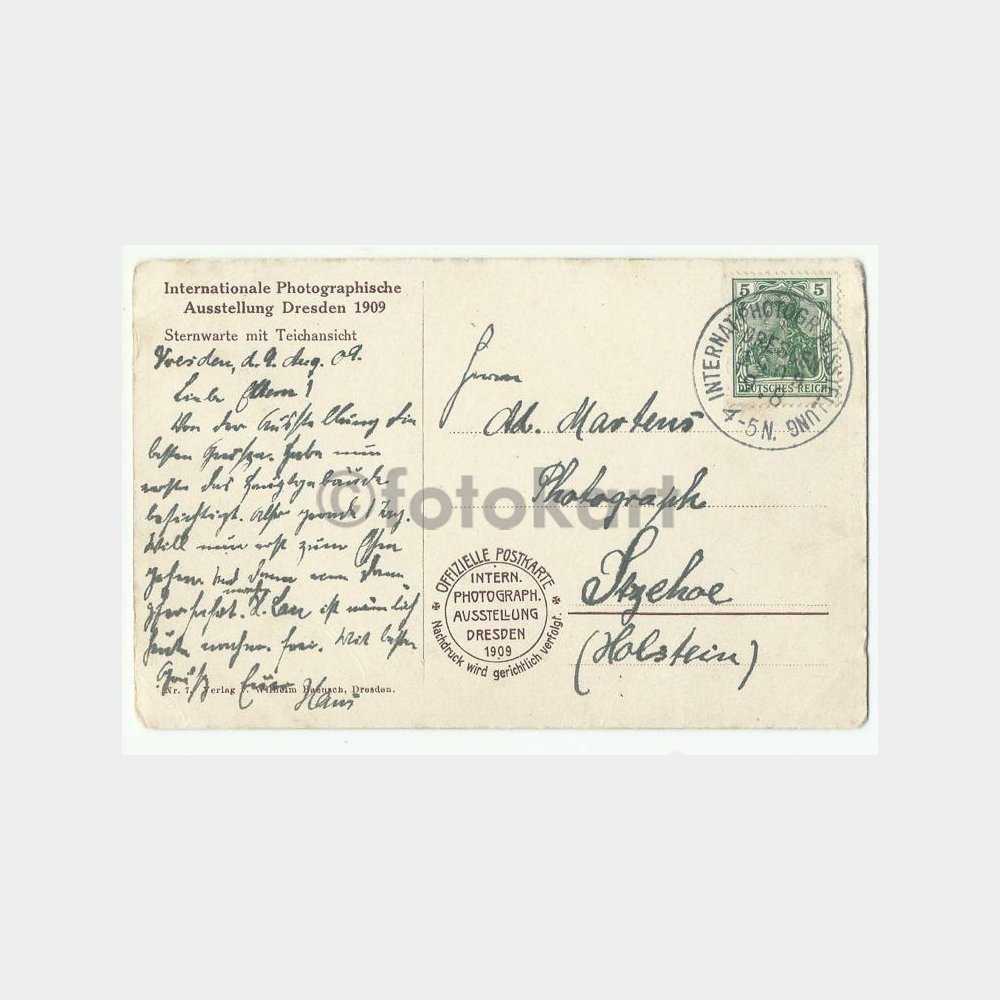 Internationale Photographische
Ausstellung Dresden 1909
Sternwarte mit Teichansicht
Dresden, d. 9. Aug. 09.
Liebe Eltern!
Von der Ausstellung die
besten Grüße. Habe nun
erst das Hauptgebäude
besichtigt.
Will nun erst zum Essen
gehen. Und dann
ist nämlich
heute frei. Mit besten
Gruß Euer Hans
Nr. 7. Verlag v. Wilhelm Baensch, Dresden.
5 5
DEUTSCHES REICH
INTERNAT. PHOTOGR. AUSSTELLUNG
DRESDEN
4-5N.
Herrn
Ad. Martens
Photograph
Itzehoe
(Holstein)
OFFIZIELLE POSTKARTE
INTERN.
PHOTOGRAPH.
AUSSTELLUNG
DRESDEN
1909
Nachdruck wird gerichtlich verfolgt.
©fotokart